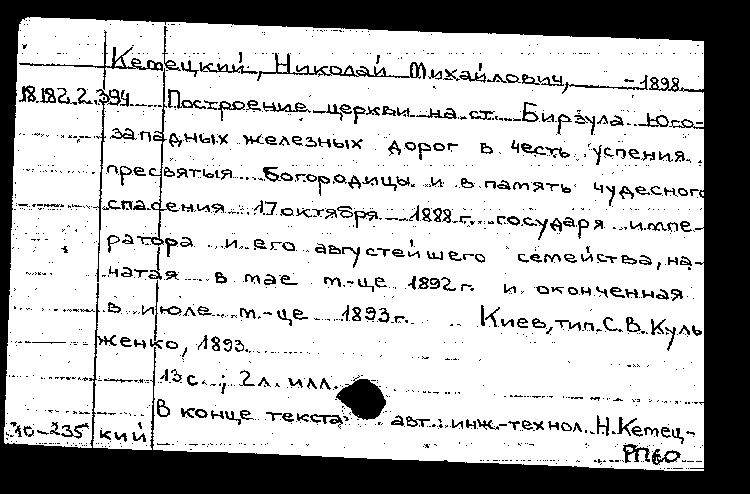 Кемецкий, Николай Михайлович, - 1898
18.182.2.394 Построение церкви на ст. Бирзула Юго=
западных железных дорог в честь успения
пресвятыя Богородицы и в память чудесного
спасения 17 октября 1888 г. государя импе-
ратора и его августейшего семейства, на-
чатая в мае м-це 1892 г. и оконченная
в июле м-це 1893 г. Киев, тип. С.В. Куль
женко, 1893.
13 с.; 2 л. илл.
В конце текста авт.: инж.-технол. Н. Кемец-
10-235 кий
РП60